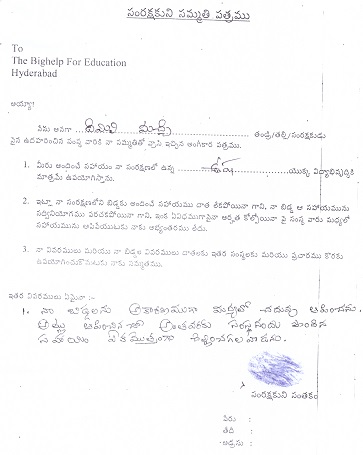 సంరక్షకుని సమ్మతి పత్రము
To
The Bighelp For Education
Hyderabad
అయ్యా!
నేను అనగా తండ్రి/తల్లి/సంరక్షకుడు
పైన ఉదహరించిన సంస్థ వారికి నా సమ్మతితో వ్రాసి ఇచ్చిన అంగీకార పత్రము.
1. మీరు అందించే సహాయం నా సంరక్షణలో ఉన్న యొక్క విద్యాభివృద్ధికి
మాత్రమే ఉపయోగిస్తాను.
2. ఇట్లా నా సంరక్షణలోని బిడ్డకు అందించే సహాయము చాత లేకపోయినా గాని, నా బిడ్డ ఆ సహాయమును
సద్వినియోగము పరచకపోయినా గాని, ఇంక ఏవిధముగానైనా అర్హత కోల్పోయినా పై సంస్థ వారు మధ్యలో
సహాయమును ఆపివేయుటకు నాకు అభ్యంతరము లేదు.
3. నా వివరములు మరియు నా బిడ్డల వివరములు దాతలకు ఇతర సంస్థలకు మరియు ప్రచారము కొరకు
ఉపయోగించుకొనుటకు నాకు సమ్మతము.
ఇతర వివరములు ఏమైనా :-
1. నా బిడ్డలను చదువు
సంరక్షకుని సంతకం
పేరు :
తేది :
అడ్రసు :